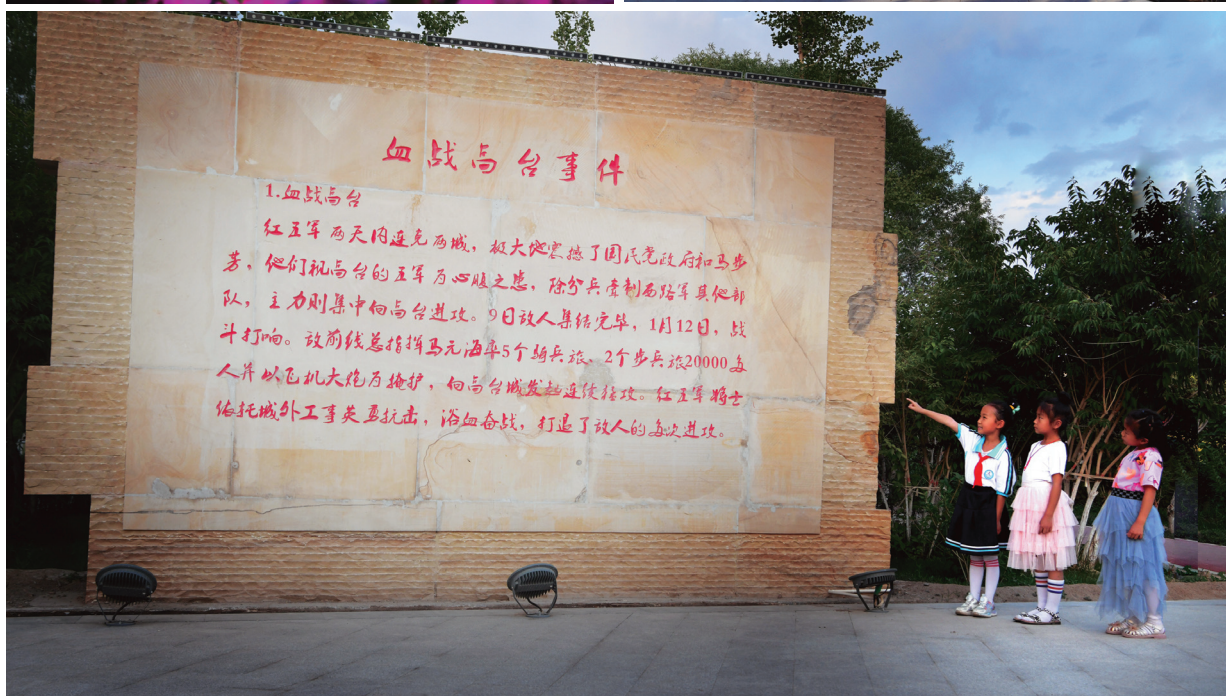 血战高台事件
1.血战高台
红五军两天内连克两城，极大地震撼了国民党政府和马步
芳，他们视高台的五军为心腹之患，除分兵牵制西路军其他部
队，主力则集中向高台进攻。9日敌人集结完毕，1月12日，战
斗打响。敌前线总指挥马元海率5个骑兵旅、2个步兵旅20000多
人并以飞机大炮为掩护，向高台城发起连续猛攻。红五军将士
依托城外工事英勇抗击，浴血奋战，打退了敌人的每次进攻。